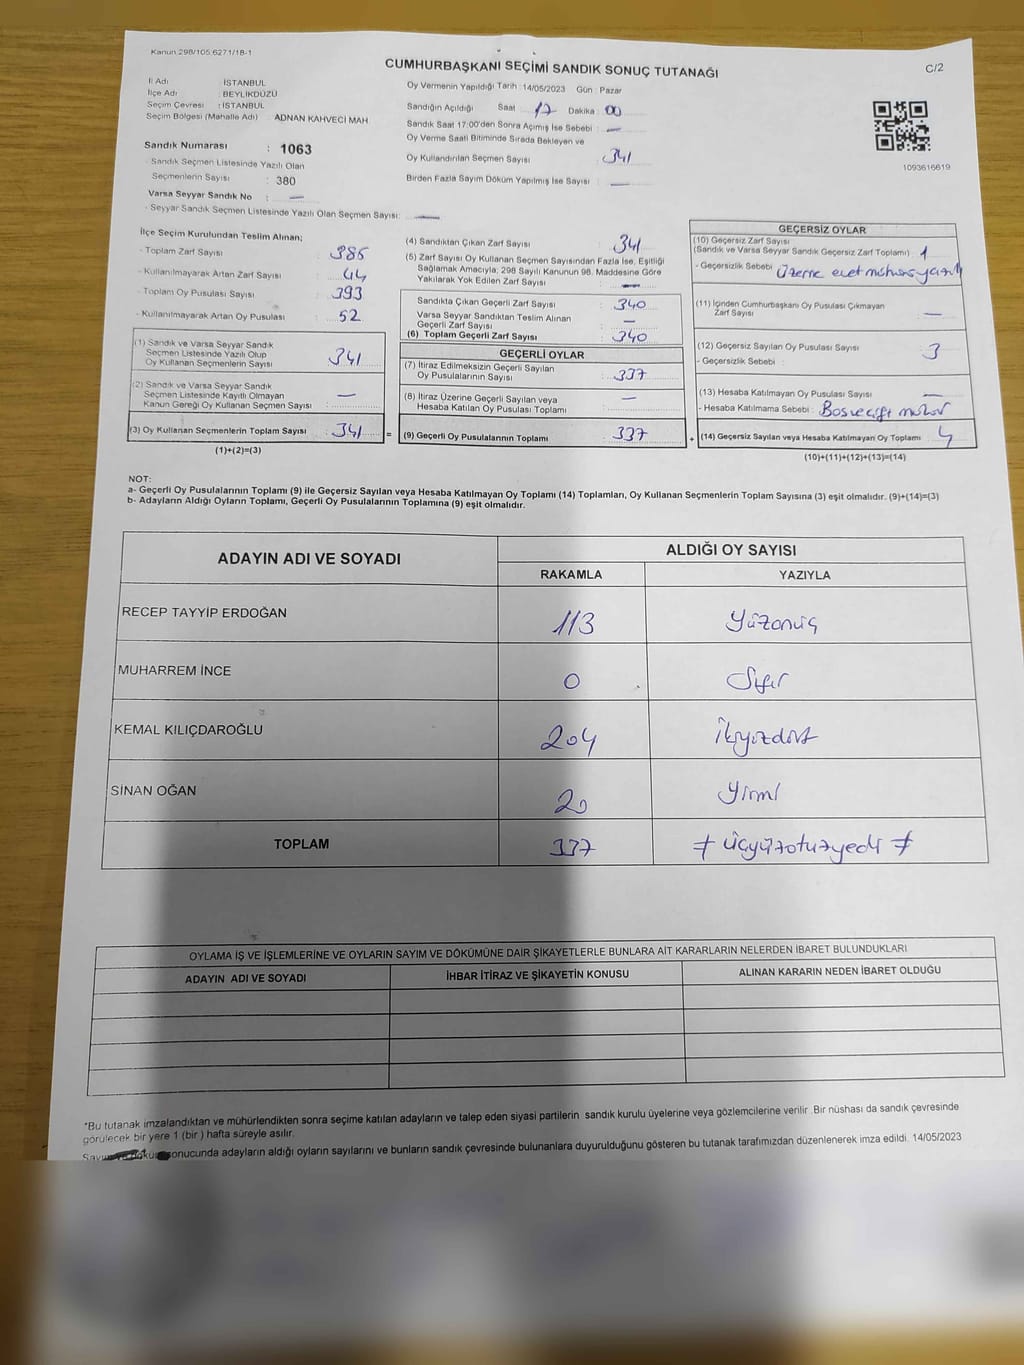 Kanun 298/105 6271/18-1
CUMHURBAŞKANI SEÇİMİ SANDIK SONUÇ TUTANAĞI
C/2
İl Adı : İSTANBUL
İlçe Adı : BEYLİKDÜZÜ
Seçim Çevresi : İSTANBUL
Seçim Bölgesi (Mahalle Adı) ADNAN KAHVECİ MAH
Sandık Numarası : 1063
- Sandık Seçmen Listesinde Yazılı Olan
Seçmenlerin Sayısı : 380
Varsa Seyyar Sandık No : —
- Seyyar Sandık Seçmen Listesinde Yazılı Olan Seçmen Sayısı: —
Oy Vermenin Yapıldığı Tarih :14/05/2023 Gün : Pazar
Sandığın Açıldığı Saat 17 Dakika : 00
Sandık Saat 17:00'den Sonra Açımış İse Sebebi : —
Oy Verme Saati Bitiminde Sırada Bekleyen ve
Oy Kullandırılan Seçmen Sayısı : 341
Birden Fazla Sayım Döküm Yapılmış İse Sayısı : —
1093616619
İlçe Seçim Kurulundan Teslim Alınan;
- Toplam Zarf Sayısı : 385
- Kullanılmayarak Artan Zarf Sayısı : 44
- Toplam Oy Pusulası Sayısı : 393
- Kullanılmayarak Artan Oy Pusulası : 52
(1) Sandık ve Varsa Seyyar Sandık
Seçmen Listesinde Yazılı Olup
Oy Kullanan Seçmenlerin Sayısı : 341
(2) Sandık ve Varsa Seyyar Sandık
Seçmen Listesinde Kayıtlı Olmayan
Kanun Gereği Oy Kullanan Seçmen Sayısı : —
(3) Oy Kullanan Seçmenlerin Toplam Sayısı : 341 =
(1)+(2)=(3)
(4) Sandıktan Çıkan Zarf Sayısı : 341
(5) Zarf Sayısı Oy Kullanan Seçmen Sayısından Fazla İse, Eşitliği
Sağlamak Amacıyla; 298 Sayılı Kanunun 98. Maddesine Göre
Yakılarak Yok Edilen Zarf Sayısı : —
Sandıkta Çıkan Geçerli Zarf Sayısı : 340
Varsa Seyyar Sandıktan Teslim Alınan
Geçerli Zarf Sayısı : —
(6) Toplam Geçerli Zarf Sayısı : 340
GEÇERLİ OYLAR
(7) İtiraz Edilmeksizin Geçerli Sayılan
Oy Pusulalarının Sayısı : 337
(8) İtiraz Üzerine Geçerli Sayılan veya
Hesaba Katılan Oy Pusulası Toplamı : —
(9) Geçerli Oy Pusulalarının Toplamı : 337 +
GEÇERSİZ OYLAR
(10) Geçersiz Zarf Sayısı
(Sandık ve Varsa Seyyar Sandık Geçersiz Zarf Toplamı) : 1
- Geçersizlik Sebebi : Üzerine evet mührü
(11) İçinden Cumhurbaşkanı Oy Pusulası Çıkmayan
Zarf Sayısı : —
(12) Geçersiz Sayılan Oy Pusulası Sayısı : 3
- Geçersizlik Sebebi :
(13) Hesaba Katılmayan Oy Pusulası Sayısı : —
- Hesaba Katılmama Sebebi : Boş ve çift mühür
(14) Geçersiz Sayılan veya Hesaba Katılmayan Oy Toplamı : 4
(10)+(11)+(12)+(13)=(14)
NOT:
a- Geçerli Oy Pusulalarının Toplamı (9) ile Geçersiz Sayılan veya Hesaba Katılmayan Oy Toplamı (14) Toplamları, Oy Kullanan Seçmenlerin Toplam Sayısına (3) eşit olmalıdır. (9)+(14)=(3)
b- Adayların Aldığı Oyların Toplamı, Geçerli Oy Pusulalarının Toplamına (9) eşit olmalıdır.
ADAYIN ADI VE SOYADI ALDIĞI OY SAYISI
RAKAMLA YAZIYLA
RECEP TAYYİP ERDOĞAN 113 Yüzonüç
MUHARREM İNCE 0 Sıfır
KEMAL KILIÇDAROĞLU 204 İkiyüzdört
SİNAN OĞAN 20 Yirmi
TOPLAM 337 ≠ Üçyüzotuzyedi ≠
OYLAMA İŞ VE İŞLEMLERİNE VE OYLARIN SAYIM VE DÖKÜMÜNE DAİR ŞİKAYETLERLE BUNLARA AİT KARARLARIN NELERDEN İBARET BULUNDUKLARI
ADAYIN ADI VE SOYADI İHBAR İTİRAZ VE ŞİKAYETİN KONUSU ALINAN KARARIN NEDEN İBARET OLDUĞU
*Bu tutanak imzalandıktan ve mühürlendikten sonra seçime katılan adayların ve talep eden siyasi partilerin sandık kurulu üyelerine veya gözlemcilerine verilir. Bir nüshası da sandık çevresinde
görülecek bir yere 1 (bir ) hafta süreyle asılır.
sonucunda adayların aldığı oyların sayılarını ve bunların sandık çevresinde bulunanlara duyurulduğunu gösteren bu tutanak tarafımızdan düzenlenerek imza edildi. 14/05/2023